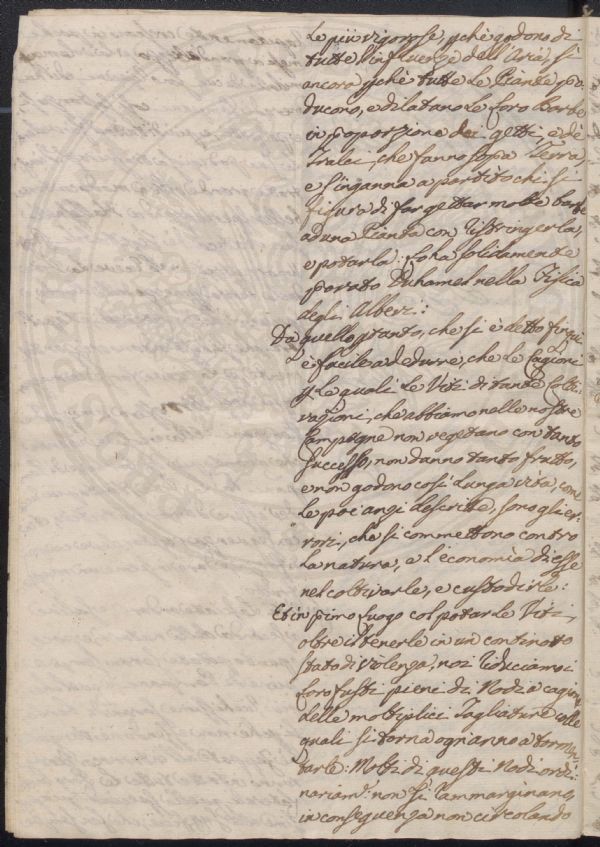 le più vigorose, pchè godono di
tutte l'influenze dell'Aria, sì
ancora pchè tutte le Piante pro
ducono, e dilatano le loro Barbe
in proporzione dei getti, e dè
Tralci, che fanno sopra Terra,
e s'inganna a partito chi si
figura di far gettar molte barbe
ad una Pianta con ristringerla,
e potarla: lo ha solidamente
provato Duhamel nella Fisica
degli Alberi:
Da quello ptanto, che si è detto finqui
è facile a dedurre, che le Cagioni
p le quali le Viti di tante Colti:
vazioni, che abbiamo nelle nostre
Campagne non vegetano con tanto
successo, non danno tanto frutto,
e non godono così lunga vita, come
le poc'anzi descritte, sono gli er:
rori, che si commettono contro
la natura, e l'economia di esse
nel coltivarle, e custodirle:
Et in primo luogo col potar le Viti,
oltre il tenerle in un continovo
stato di violenza, noi riduciamo i
loro fusti pieni di Nodi a cagione
delle moltiplici Tagliature colle
quali si torna ogn'anno a tormen
tarle: Molti di questi Nodi ordi:
nariam: non si rammarginano,
in conseguenza non circolando